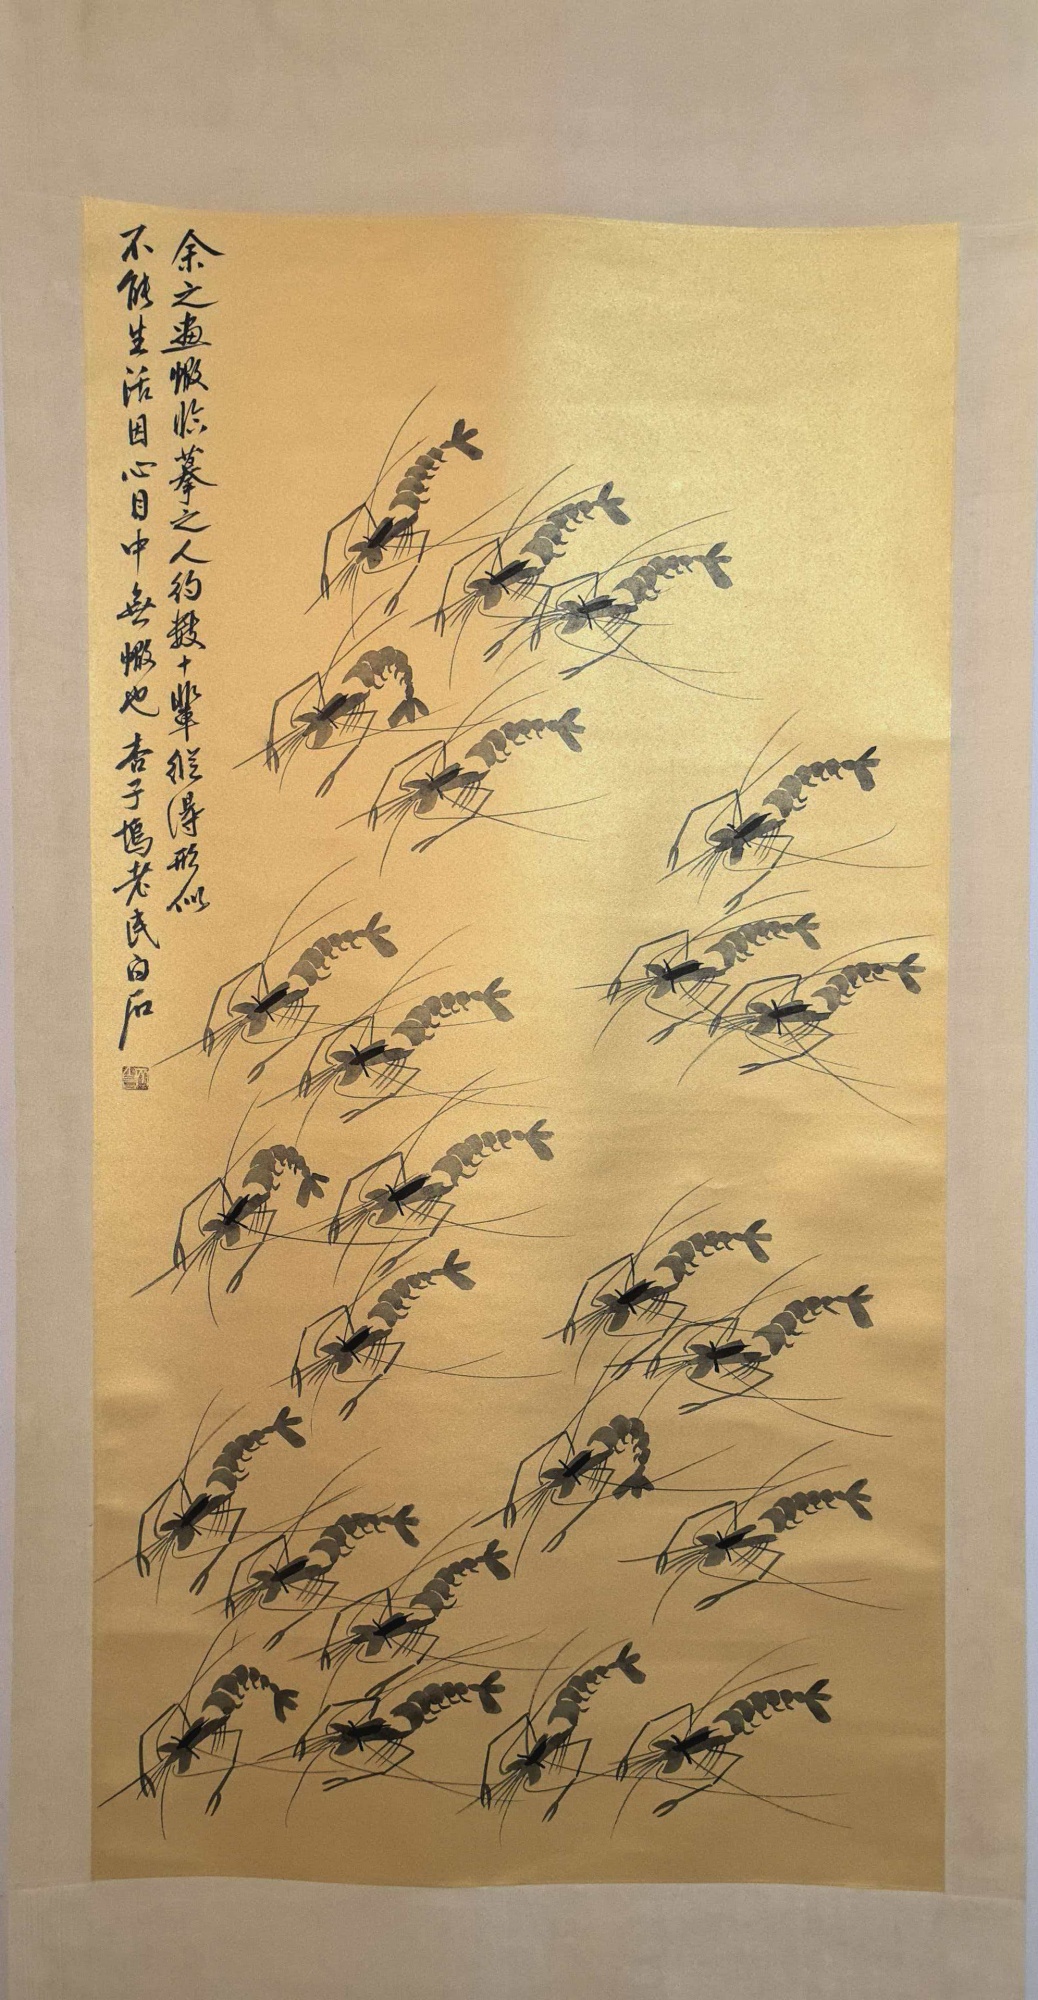 余之畫蝦臨摹之人約數十輩縱得形似
不能生活因心目中無蝦也杏子塢老民白石